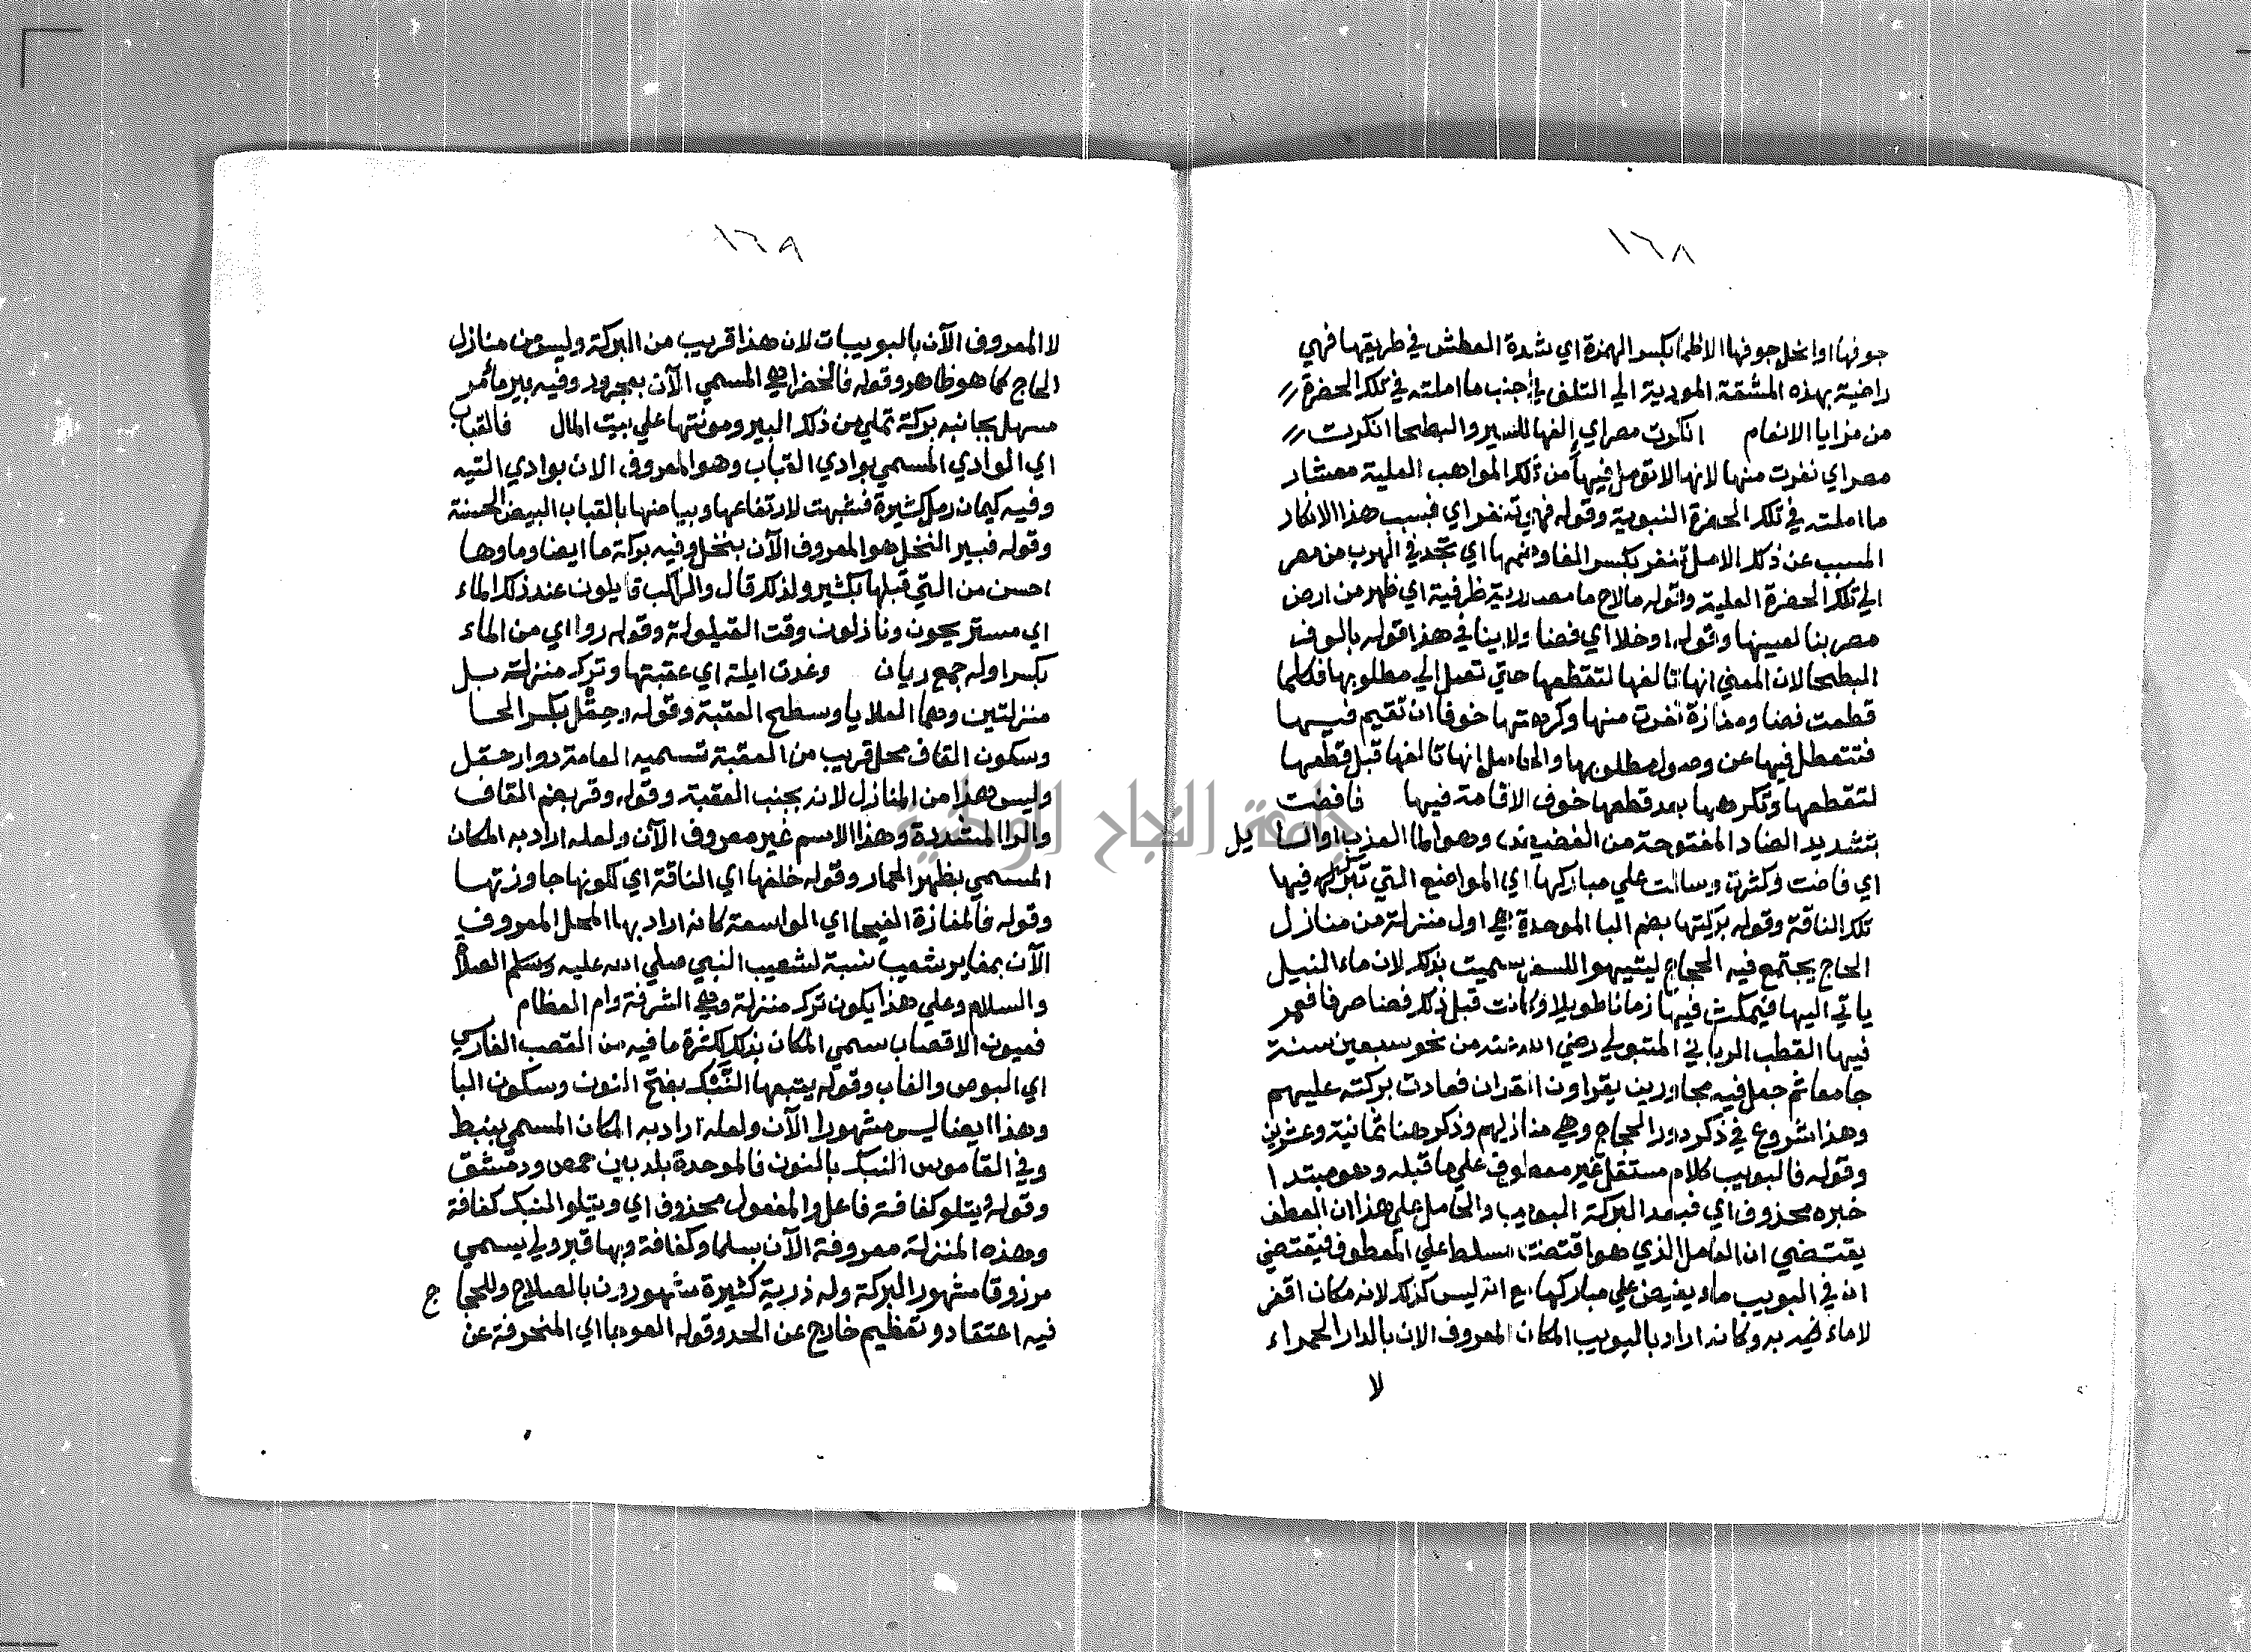 ١٦٨
جوفها او انحل جوفها الاظما بكسر الهمزة اي شدة العطش في طريقها فهي
راضية بهذه المشقة المودية الي التلف في جنب ما املته في تلك الحضرة
من مزايا الانعام انكرت مصر اي الفها للسير والبطحا انكرت
مصر اي نفرت منها لانها لا تومل فيها من تلك المواهب العلية معشار
ما املته في تلك الحضرة النبوية وقوله فهي تنفر اي فبسبب هذا الانكار
المسبب عن ذلك الامل تنفر بكسر الفا وضمها اي تجد في الهرب من مصر
الي تلك الحضرة العلية وقوله مالاح ما مصدرية ظرفية اي ظهر من ارض
مصر بنا لعينها وقوله او خلا اي فضا ولا ينافي هذا قوله بالوف
البطحا لان المعني انها تالفها لتقطعها حتي تصل الي مطلوبها فكلما
قطعت فضا ومفازة نفرت منها وكرهتها خوفا ان تقيم فيها
فتتعطل فيها عن وصول مطلوبها والحاصل انها تالفها قبل قطعها
لتقطعها وتكرهها بعد قطعها خوف الاقامة فيها فافضت
بتشديد الضاد المفتوحة من الفضيض وهو الما العذب او السايل
اي فاضت وكثرت وسالت علي مباركها اي المواضع التي تبرك فيها
تلك الناقة وقوله بركتها بضم البا الموحدة هي اول منزلة من منازل
الحاج يجتمع فيه الحجاج ليتهيوا للسفر سميت بذلك لان ماء النيل
ياتي اليها فيمكث فيها زمانا طويلا وكانت قبل ذلك فضا صرفا فعمر
فيها القطب الرباني المتبولي رضي الله عنه من نحو سبعين سنة
جامعا ثم جعل فيه مجاورين يقراون القران فعادت بركته عليهم
وهذا شروع في ذكر دور الحجاج وهي منازلهم وذكر هنا ثمانية وعشرين
وقوله فالبويب كلام مستقل غير معطوف علي ما قبله وهو مبتدا
خبره محذوف اي فبعد البركة البويب والحامل علي هذا ان العطف
يقتضي ان العامل الذي هو افضت تسلط علي المعطوف فيقتضي
ان في البويب ماء يفيض علي مباركها مع انه ليس كذلك لانه مكان اقفر
لا ماء فيه وكانه اراد بالبويب المكان المعروف الان بالدار الحمراء
لا
١٦٨
لا المعروف الآن بالبويبات لان هذا قريب من البركة وليس من منازل
الحاج كما هو ظاهر وقوله فالخضرا هي المسمي الآن بعجرود وفيه بير ماؤها مر
مسهل بجانبه بركة تملي من ذلك البير ومونتها علي بيت المال فالقباب
اي الوادي المسمي بوادي القباب وهو المعروف الان بوادي التيه
وفيه كيمان رمل كثيرة فشبهت لارتفاعها وبياضها بالقباب البيض الحسنة
وقوله فبير النخل هو المعروف الآن بنخل وفيه بركة ما ايضا وماوها
احسن من التي قبلها بكثير ولذلك قال والركب قايلون عند ذلك الماء
اي مستريحون ونازلون وقت القيلولة وقوله روا اي من الماء
بكسر اوله جمع ريان وغدت ايلة اي عقبتها وترك منزلة بل
منزلتين وهما العلايا وسطح العقبة وقوله وحقل بكسر الحا
وسكون القاف محل قريب من العقبة تسميه العامة دوار حقل
وليس هذا من المنازل لانه بجنب العقبة وقوله وقر بضم القاف
والرا المشددة وهذا الاسم غير معروف الآن ولعله اراد به المكان
المسمي بظهر الحمار وقوله خلفها اي الناقة اي لكونها جاوزتها
وقوله فالمفازة الفيحا اي الواسعة كانه اراد بها المحل المعروف
الآن بمغاير شعيب نسبة لشعيب النبي صلي الله عليه وسلم الصلاة
والسلام وعلي هذا يكون ترك منزلة وهي الشرفة وام العظام
فعيون الاقصاب سمي المكان بذلك لكثرة ما فيه من القصب الفارسي
اي البوص والغاب وقوله يتبعها النَّبْك بفتح النون وسكون البا
وهذا ايضا ليس مشهورا الآن ولعله اراد به المكان المسمي بنبط
وفي القاموس النبك بالنون فالموحدة بلد بين حمص ودمشق
وقوله ويتلو كفافة فاعل والمفعول محذوف اي ويتلوا النبك كفافة
وهذه المنزلة معروفة الآن بسلما وكفافة وبها قبر ولي يسمي
مرزوقا مشهور البركة وله ذرية كثيرة مشهورون بالصلاح وللحجاج
فيه اعتقاد وتعظيم خارج عن الحد وقوله العوجا اي المنحرفة عن
جامعة النجاح الوطنية